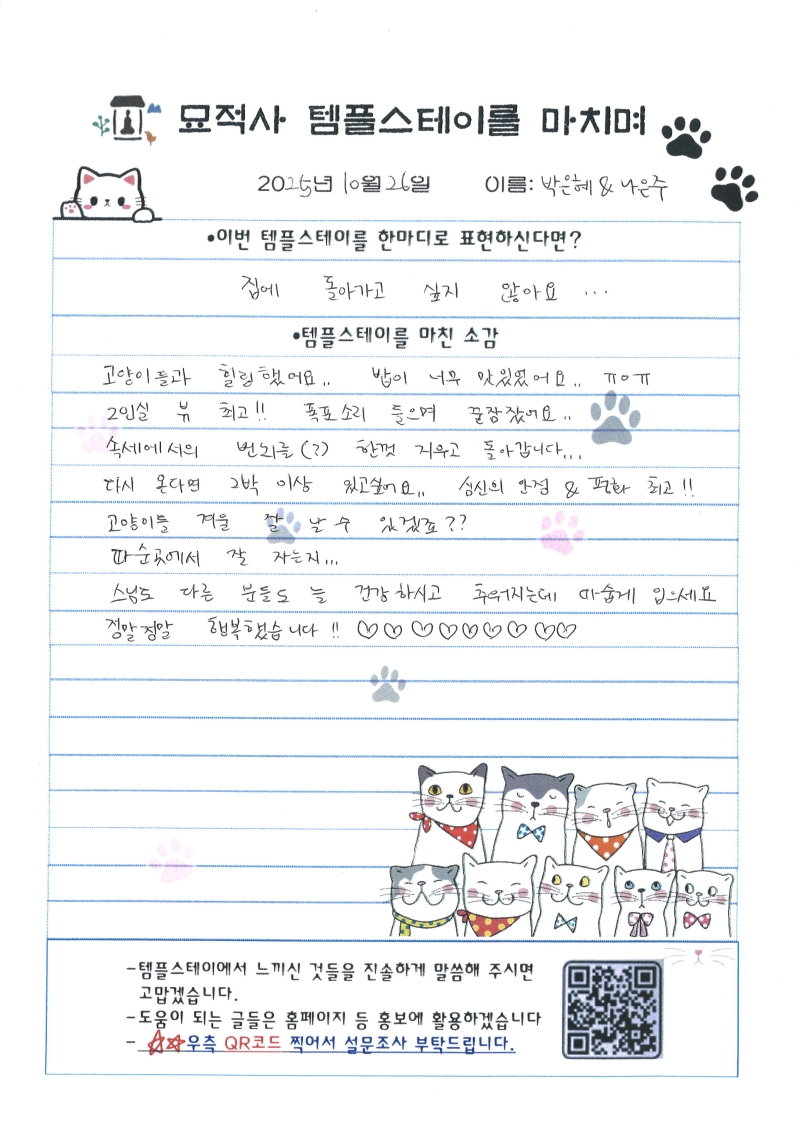 묘적사 템플스테이를 마치며
2025년 10월 26일 이름: 박은혜 & 나은주
•이번 템플스테이를 한마디로 표현하신다면?
집에 돌아가고 싶지 않아요 ...
•템플스테이를 마친 소감
고양이들과 힐링했어요.. 밥이 너무 맛있었어요.. ㅠㅇㅠ
2인실 뷰 최고!! 폭포소리 들으며 꿀잠잤어요..
속세에서의 번뇌를(?) 한껏 지우고 돌아갑니다...
다시 온다면 2박 이상 있고싶어요.. 심신의 안정 & 평화 최고!!
고양이들 겨울 잘 날 수 있겠죠??
따순곳에서 잘 자는지...
스님도 다른 분들도 늘 건강하시고 추워지는데 따숩게 입으세요
정말정말 행복했습니다!! ♡♡♡♡♡♡♡♡♡
-템플스테이에서 느끼신 것들을 진솔하게 말씀해 주시면
고맙겠습니다.
-도움이 되는 글들은 홈페이지 등 홍보에 활용하겠습니다
- ☆☆우측 QR코드 찍어서 설문조사 부탁드립니다.